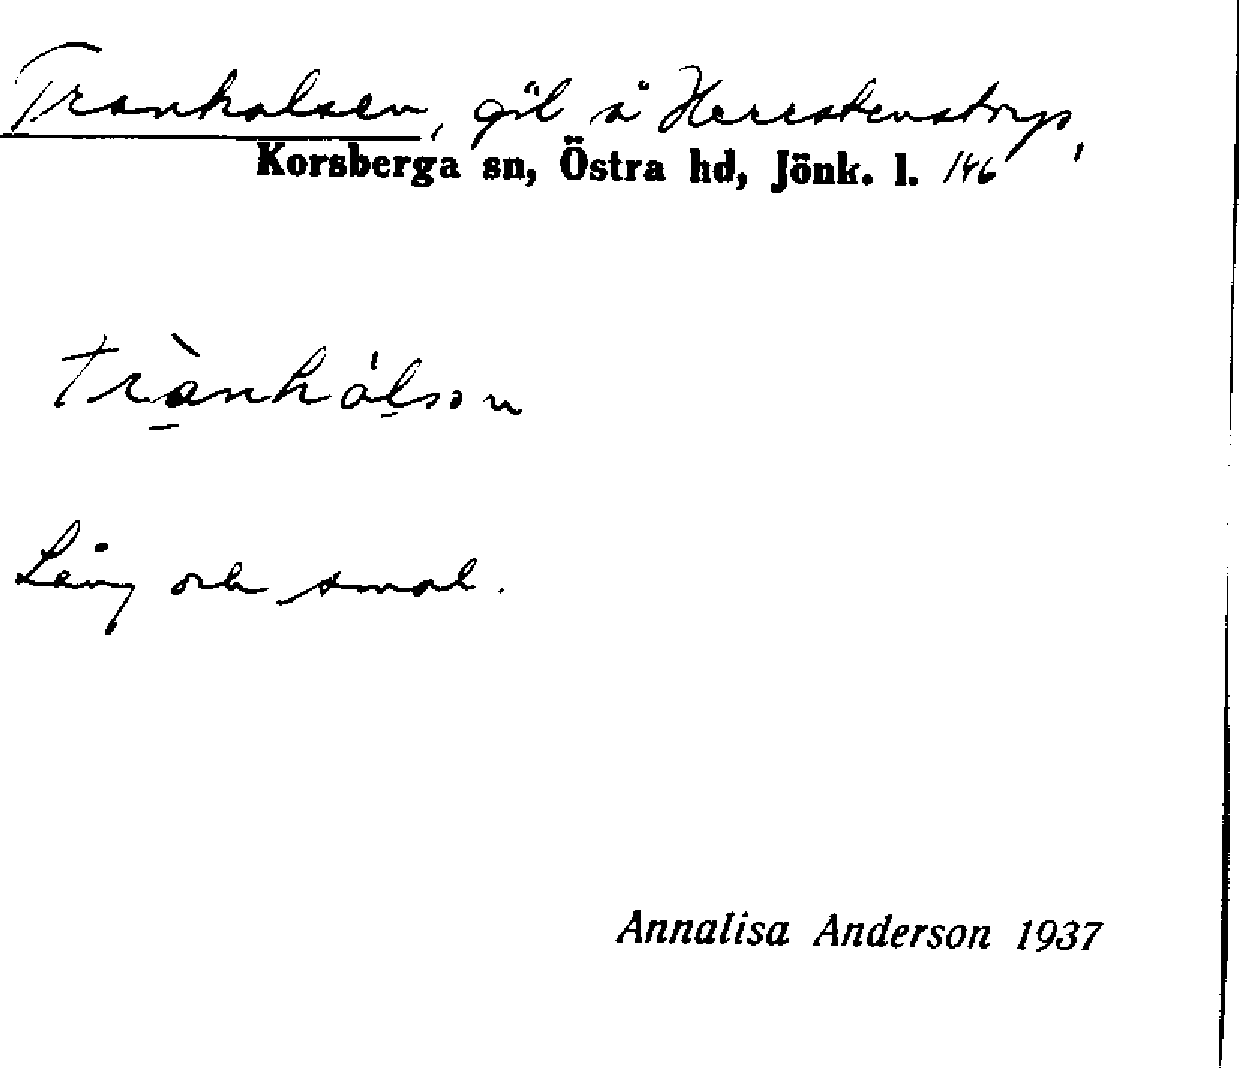 Tranhalsen, göl å Herrstenstorps,
Korsberga sn, Östra hd, Jönk. l. 146
trànhálsən
Lång och smal.
Annalisa Anderson 1937